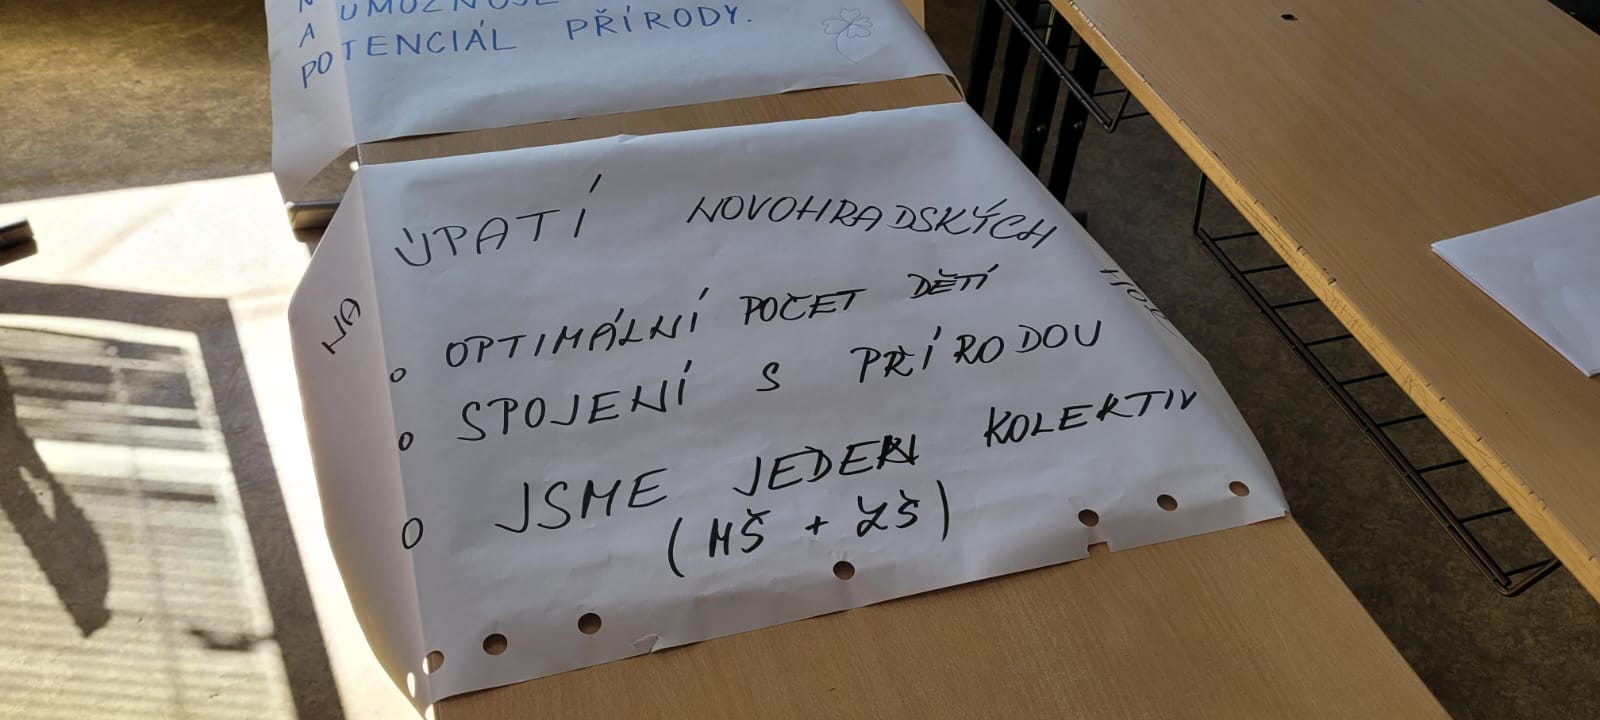 UMOŽŇUJE
A
POTENCIÁL PŘÍRODY.
NA ÚPATÍ NOVOHRADSKÝCH HOR
o OPTIMÁLNÍ POČET DĚTÍ
o SPOJENÍ S PŘÍRODOU
O JSME JEDEN KOLEKTIV
(MŠ + ZŠ)